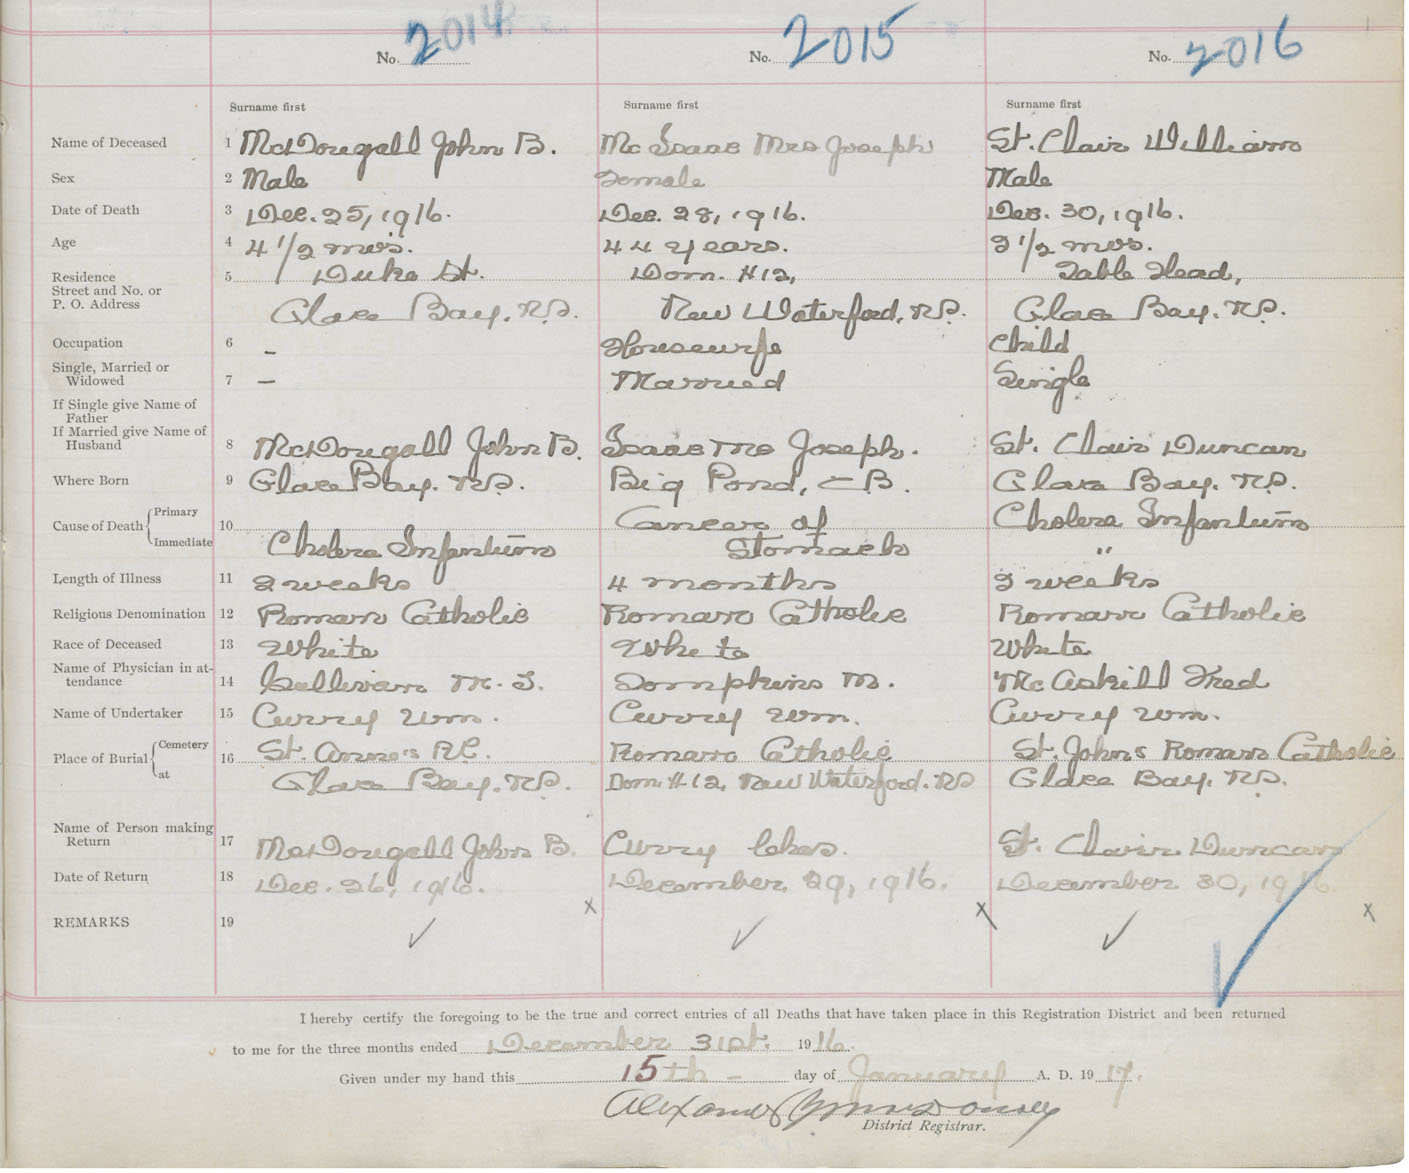 No. 2014 No. 2015 No. 2016
Surname first Surname first Surname first
Name of Deceased 1 McDougall John B. McIsaac Mrs Joseph St. Clair William
Sex 2 Male Female Male
Date of Death 3 Dec. 25, 1916. Dec. 28, 1916. Dec. 30, 1916.
Age 4 4 1/2 mos. 44 years. 2 1/2 mos.
Residence 5 Duke St. Dom. #12, Table Head,
Street and No. or
P. O. Address Glace Bay. N.S. New Waterford, N.S. Glace Bay. N.S.
Occupation 6 – Housewife Child
Single, Married or
Widowed 7 – Married Single
If Single give Name of
Father
If Married give Name of
Husband 8 McDougall John B. Isaac Mc Joseph. St. Clair Duncan
Where Born 9 Glace Bay. N.S. Big Pond, C.B. Glace Bay. N.S.
Cause of Death Primary 10 Cancer of Cholera Infantum
Immediate Cholera Infantum Stomach "
Length of Illness 11 2 weeks 4 months 2 weeks
Religious Denomination 12 Roman Catholic Roman Catholic Roman Catholic
Race of Deceased 13 White White White
Name of Physician in at-
tendance 14 Sullivan M. T. Tompkins M. McAskill Fred
Name of Undertaker 15 Curry Wm. Curry Wm. Curry Wm.
Place of Burial Cemetery 16 St. Anne's R.C. Roman Catholic St. John's Roman Catholic
at Glace Bay. N.S. Dom. #12, New Waterford. N.S Glace Bay. N.S.
Name of Person making
Return 17 McDougall John B. Curry St. Clair Duncan
Date of Return 18 Dec. 26, 1916. December 29, 1916. December 30, 1916.
REMARKS 19
I hereby certify the foregoing to be the true and correct entries of all Deaths that have taken place in this Registration District and been returned
to me for the three months ended December 31st. 1916.
Given under my hand this 15th – day of January A. D. 1917.
District Registrar.